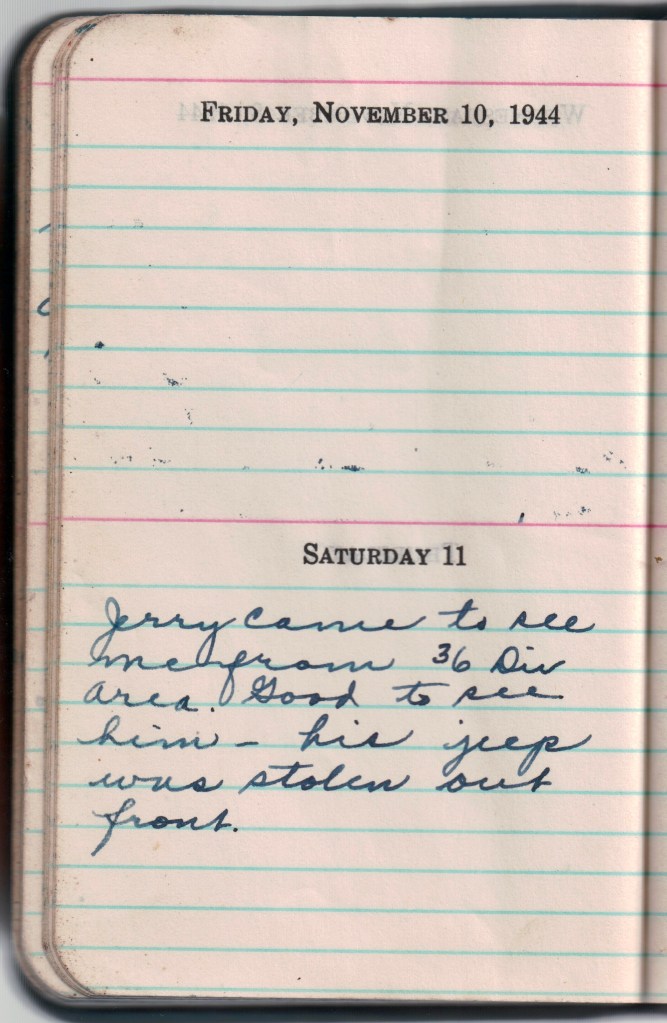 FRIDAY, NOVEMBER 10, 1944
SATURDAY 11
Jerry came to see
me from 36 Div
area. Good to see
him – his jeep
was stolen out
front.